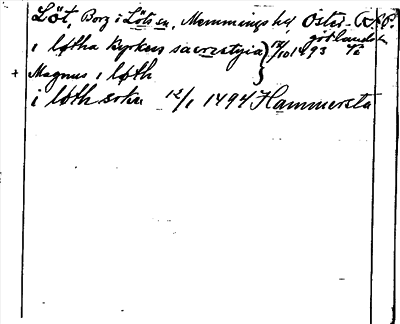 Löt, Borg i Löts sn, Memmings hd, Öster-
götlands
i løtha Kyrkens sacrestyia } 12/10 1493
+ Magnus i løth
i løth sokn 12/1 1494 Hammersta